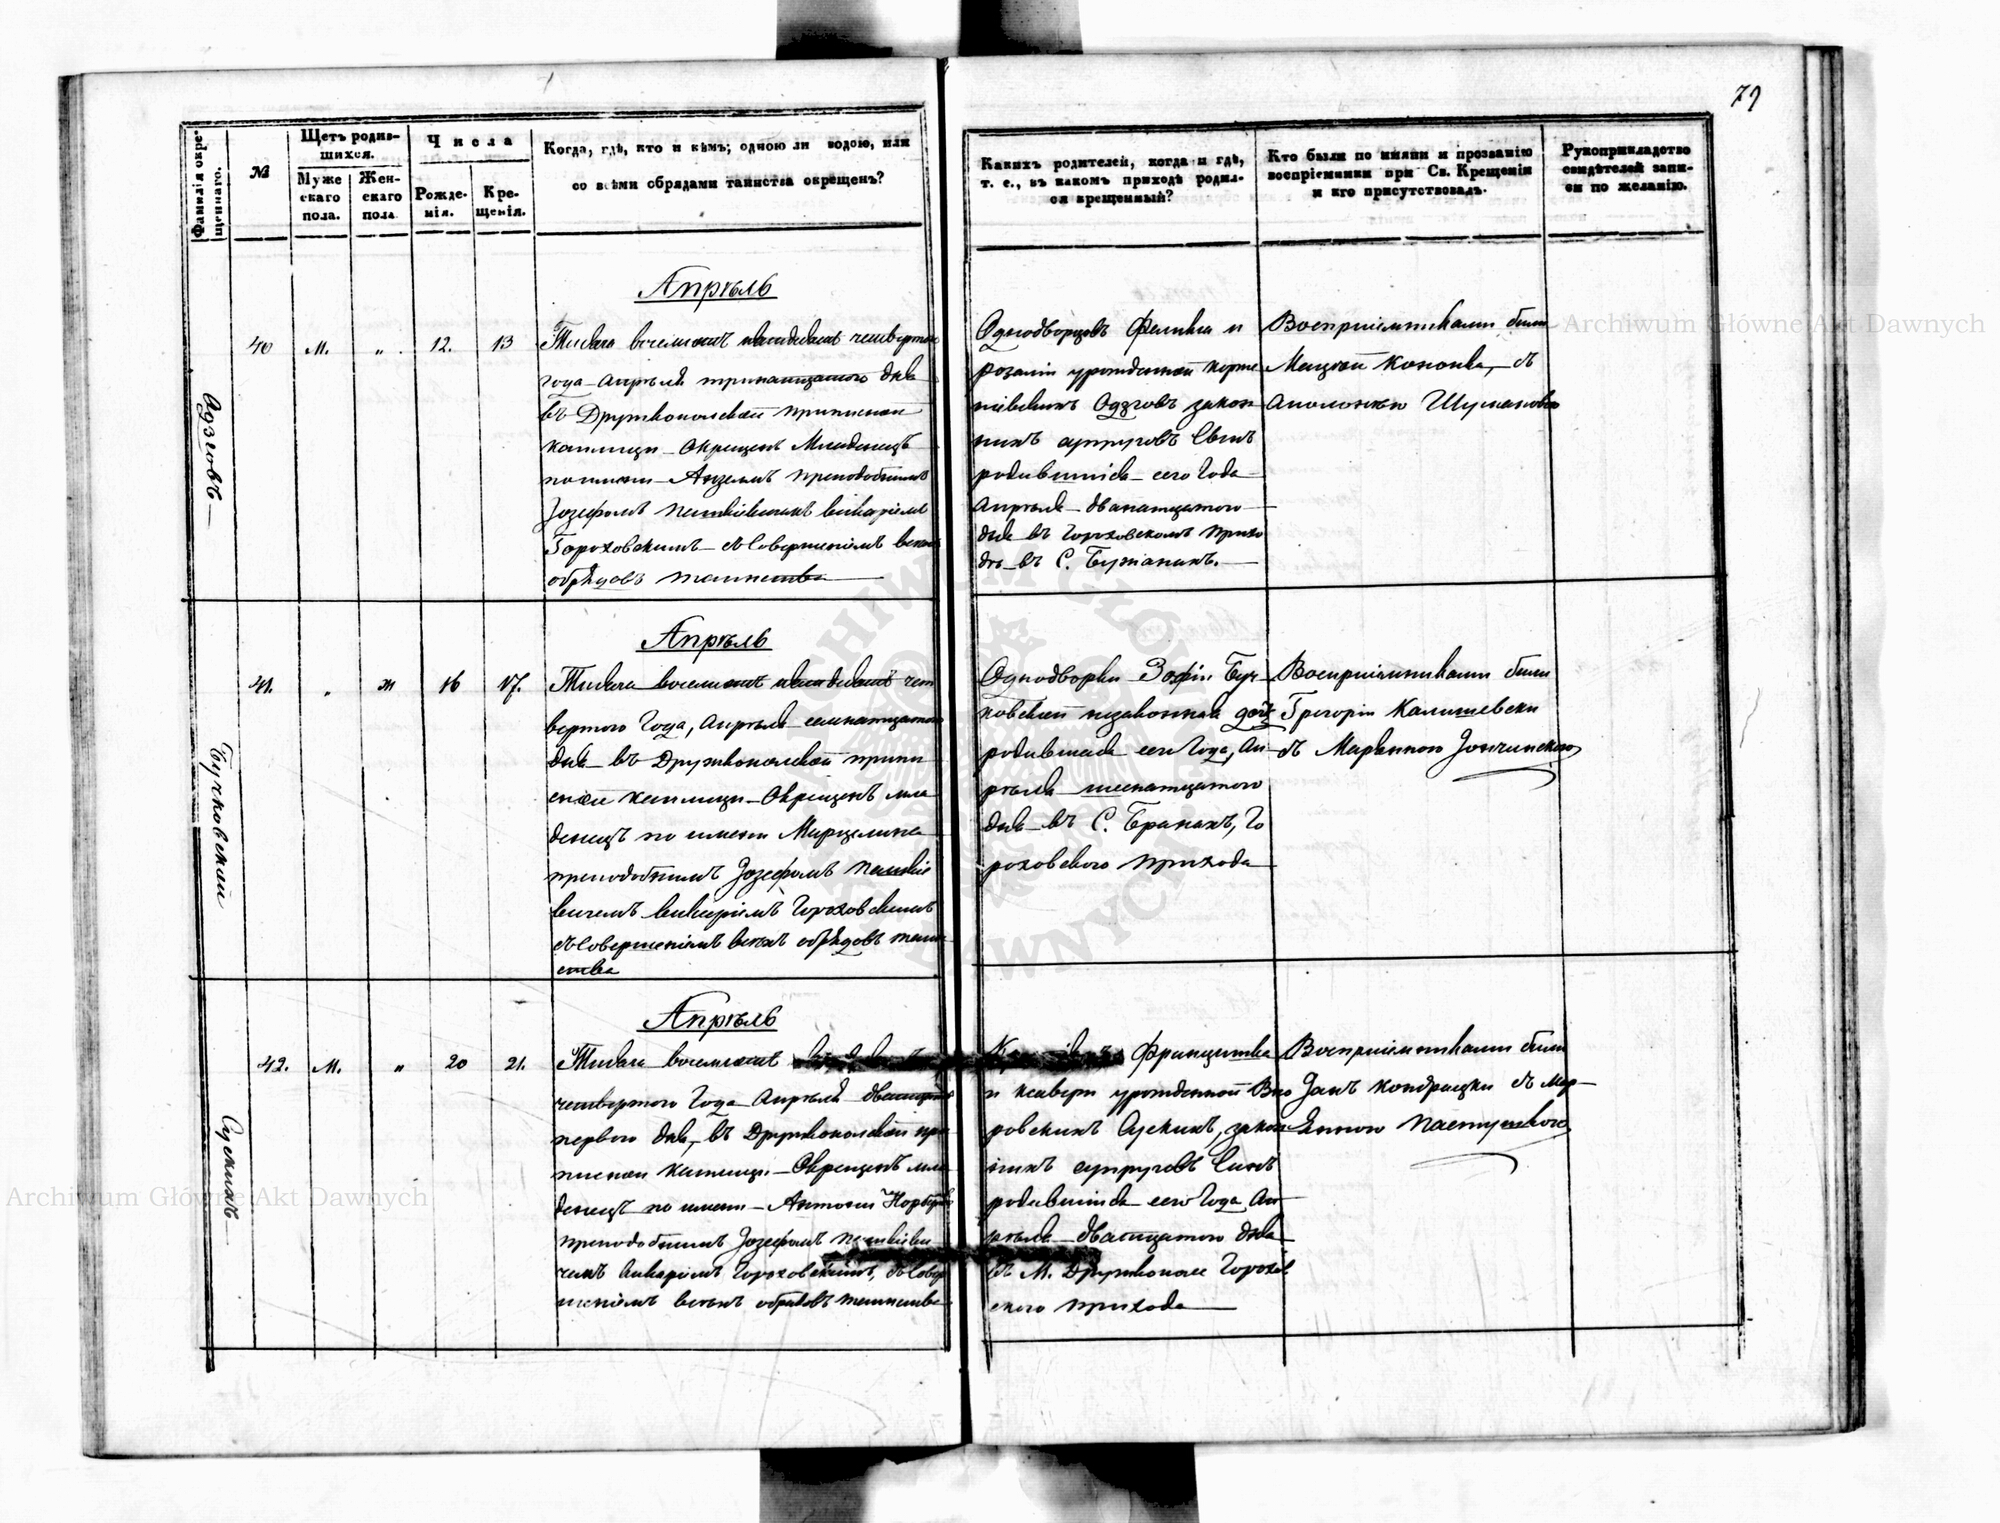 79
Фамилія окре-
щеннаго.
№
Щетъ родив-
шихся.
Муже
скаго
пола.
Жен-
скаго
пола
Числа
Рожде-
нія.
Кре-
щенія.
Когда, гдѣ, кто и кѣмъ; одною ли водою, или
со всѣми обрядами таинства окрещенъ?
Какихъ родителей, когда и гдѣ,
т. е., въ какомъ приходѣ родил-
ся крещенный?
Кто были по имяни и прозванію
воспріемники при Св. Крещеніи
и кто присутствовалъ.
Рукоприкладство
свидѣтелей запи-
си по желанію.
Одзговъ
40
М.
"
12.
13
Апрѣль
Тысяча восемьсотъ четвертого
года Апрѣля тринатцатого дня
въ Дружкопольской приписной
каплицы Окрещенъ Младенецъ
по имени преподобнымъ
Іозефомъ викаріемъ
Гороховскимъ съ Совершеніемъ всѣхъ
обрядовъ таинства
Однодворцовъ Феликса и
Розаліи урожденной
Одзговъ закон
нихъ супруговъ Сынъ
родившійся сего Года
Апрѣля дванатцатого
дня въ Гороховскомъ прихо
дѣ въ С. Бужанахъ.
Воспріемниками были
Мацѣй Конопка, съ
Аполонею
Бучковской
41.
"
ж
16
17.
Апрѣль
Тысяча восемьсотъ чет
вертого Года, Апрѣля семнатцатого
дня въ Дружкопольской припи
сной каплицы Окрещенъ мла
денецъ по имени Марцелина
преподобнымъ Іозефомъ
вичемъ викаріемъ Гороховскимъ
съ Совершеніемъ всѣхъ обрядовъ таин
ства
Однодворки Зофіи Буч-
ковской незаконная дочь
родившася сего Года, Ап-
рѣля шеснатцатого
дня въ С. Бранахъ, Го
роховского прихода
Воспріемниками были
Григорій Калишевски
съ Марянною
Сускихъ
42.
М.
"
20
21.
Апрѣль
Тысяча восемьсотъ
четвертого Года Апрѣля двадцать
первого дня, въ Дружкопольской при
писной каплицы Окрещенъ мла
денецъ по имени Антоній Норберт
преподобнымъ Іозефомъ
чемъ Викаріемъ Гороховскимъ, съ Совер
шеніемъ всѣхъ обрядовъ таинства
Францишка
и Ксаверы урожденной
ровскихъ Сускихъ, закон
нихъ супруговъ Сынъ
родившійся сего Года Ап
рѣля двадцатого дня
въ М. Дружкополе Горохов
ского прихода
Воспріемниками были
Янъ Кондрацки съ Мар-
янною
Archiwum Główne Akt Dawnych
Archiwum Główne Akt Dawnych